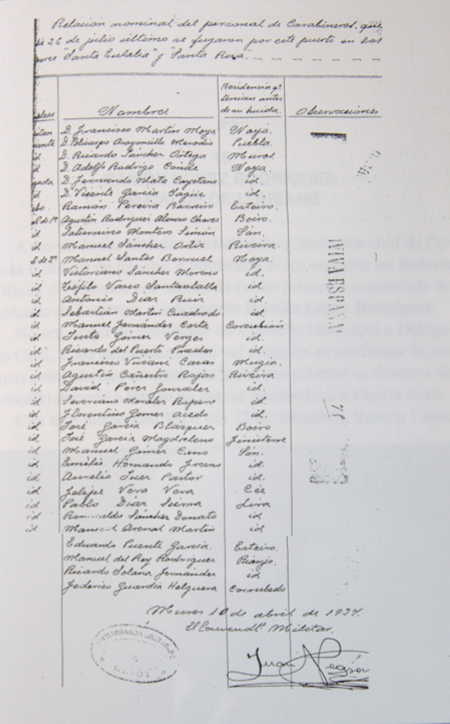 Relación nominal del personal de Carabineros, que
26 de julio último se fugaron por este puerto en los
"Santa Eulalia" y Santa Rosa.
Nombres
Residencia qe
tenían antes
de su huida.
Observaciones
D. Francisco Martín Moya Noya.
D. Policarpo Merodio Puebla.
id D. Ricardo Sánchez Ortega Muros.
id D. Adolfo Rodrigo Conde Noya
D. Fernando Mata Cayetano id.
id D. Vicente García id.
Ramón Pereira Esteiro.
Agustín Rodríguez Alonso Chaves Boiro.
id Saturnino Montero Simón Son.
id Manuel Sánchez Ortiz Riveira
Manuel Santos Noya.
id Victoriano Sánchez Moreno id.
id Teófilo Vasco Santaolalla id.
id Antonio Díaz Ruiz id.
id Sebastián Martín Cuadrado id.
id Manuel Fernández Corcubión
id Justo Gómez Verges id.
id Ricardo del Puerto id.
id Francisco Casas Mugía.
id Agustín Cañestro Rojas Riveira
id David Pérez González id.
id Severiano Morales Ropero id.
id Florentino Gómez Acedo id.
id José García Blázquez Boiro
id José García Magdaleno Finisterre
id Manuel Gómez Cano Son.
id Emilio Hernando id.
id Aurelio Pastor id.
id Vera Vera Cée
id Pablo Díaz Sierra Lira
id Romualdo Sánchez Donato id
id Manuel Arenal Martín id
Eduardo Puente García. Esteiro.
Manuel del Rey Rodríguez
Ricardo Solana Fernández id
Federico Guardia Helguera
Muros 10 de abril de 1937.
El Comandte Militar.
Juan